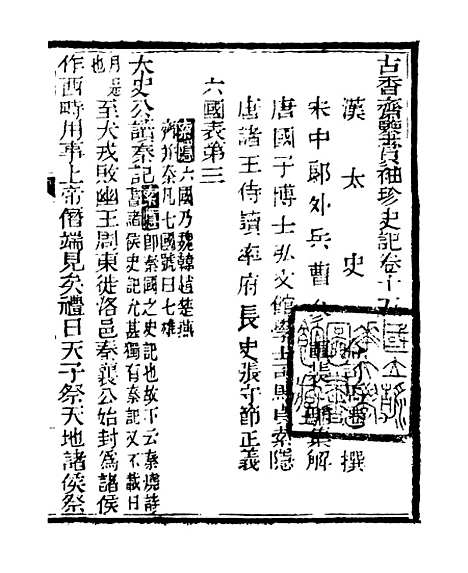 古香齋鑒賞袖珍史記卷十五
漢太史 撰
宋中郎外兵曹參 裴 集解
唐國子博士弘文館學士司馬貞索隱
唐諸王侍讀率府長史張守節正義
六國表第三
索隱六國乃魏韓趙楚燕
齊并秦凡七國號曰七雄
太史公讀秦記
索隱即秦國之史記也故下云秦燒詩
書諸侯史記尤甚獨有秦記又不載日
月是
也
至犬戎敗幽王周東徙洛邑秦襄公始封為諸侯
作西畤用事上帝僭端見矣禮曰天子祭天地諸侯祭